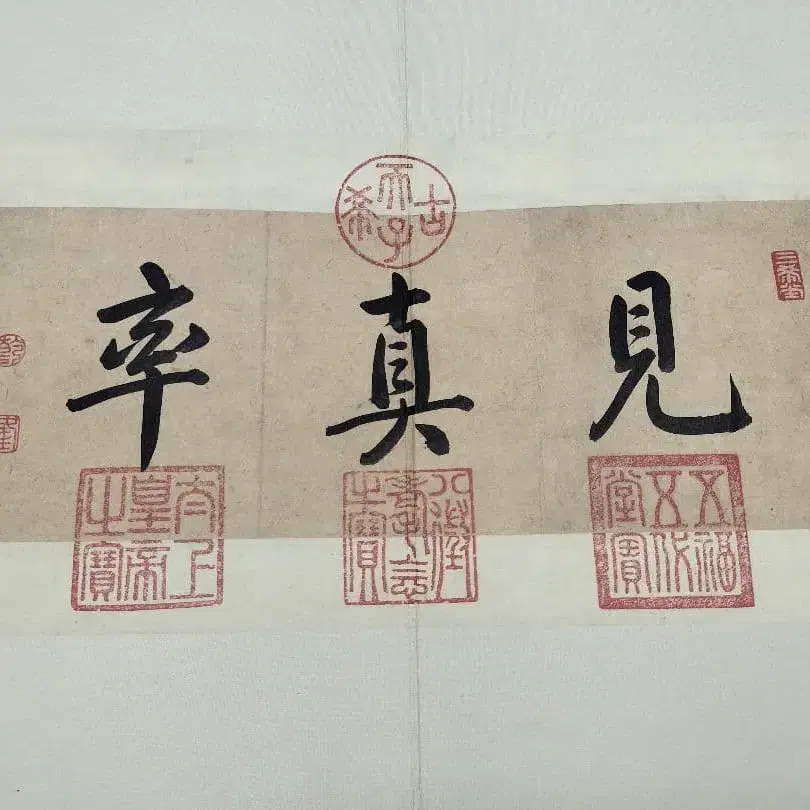 見真率
三希堂
古希天子
五福五代堂寶
八徵耄念之寶
太上皇帝之寶